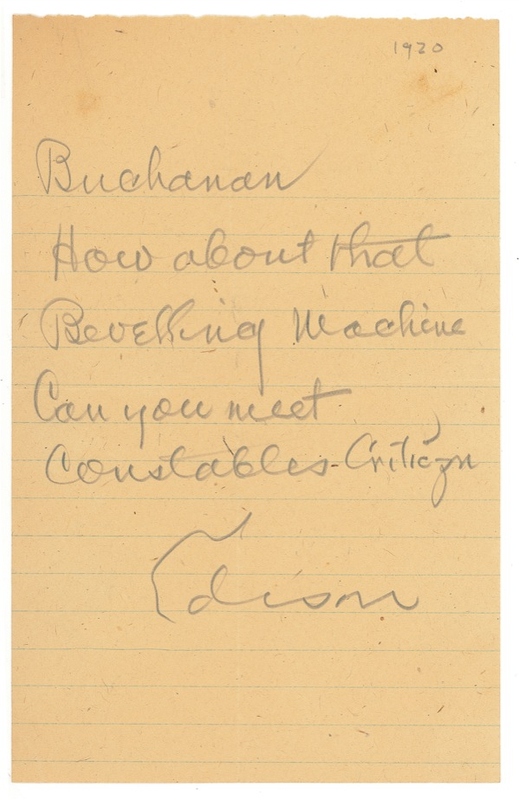 1920
Buchanan
How about that
Bevelling Machine
Can you meet
Constables Critizn
Edison